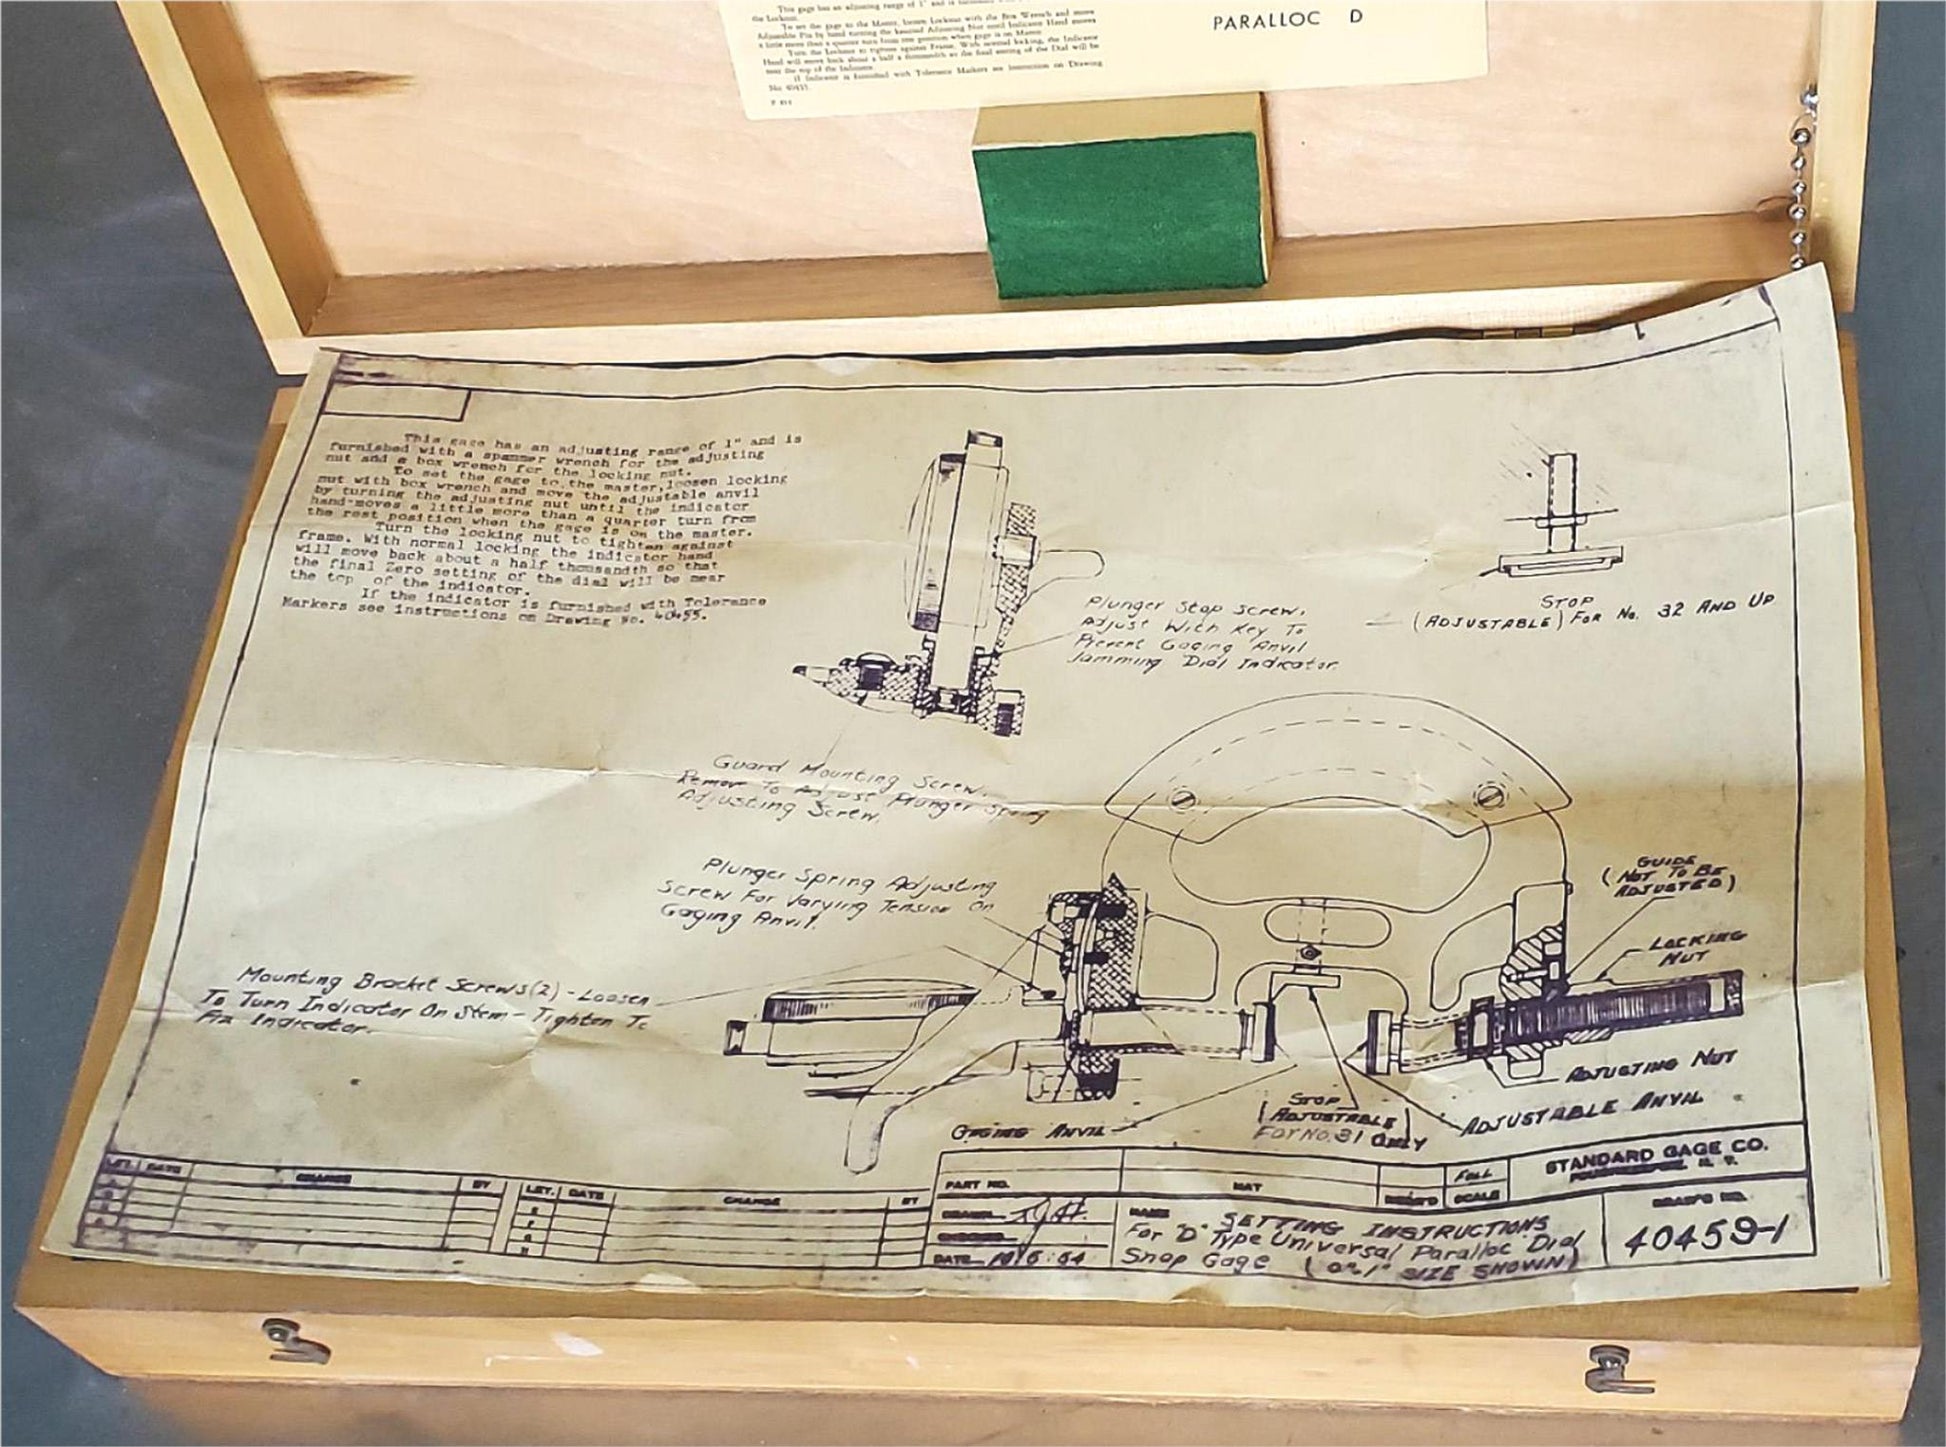 This gage has an adjusting range of 1" and is
the Locknut.
To set the gage to the Master, loosen Locknut with the Box Wrench and move
Adjustable Pin by hand turning the knurled Adjusting Nut until Indicator Hand moves
a little more than a quarter turn from rest position when gage is on Master.
Turn the Locknut to tighten against Frame. With normal locking, the Indicator
Hand will move back about a half a thousandth so the final setting of the Dial will be
near the top of the Indicator.
If Indicator is furnished with Tolerance Markers see instruction on Drawing
No. 40455.
PARALLOC D
This gage has an adjusting range of 1" and is
furnished with a spanner wrench for the adjusting
nut and a box wrench for the locking nut.
To set the gage to the master, loosen locking
nut with box wrench and move the adjustable anvil
by turning the adjusting nut until the indicator
hand-moves a little more than a quarter turn from
the rest position when the gage is on the master.
Turn the locking nut to tighten against
frame. With normal locking the indicator hand
will move back about a half thousandth so that
the final Zero setting of the dial will be near
the top of the indicator.
If the indicator is furnished with Tolerance
Markers see instructions on Drawing No. 40455.
Plunger Stop Screw.
Adjust With Key To
Prevent Gaging Anvil
Jamming Dial Indicator
STOP
(ADJUSTABLE) FOR No. 32 AND UP
Guard Mounting Screw.
Remove To Adjust Plunger Spring
Adjusting Screw.
Plunger Spring Adjusting
Screw For Varying Tension On
Gaging Anvil.
Mounting Bracket Screws (2) - Loosen
To Turn Indicator On Stem - Tighten To
Fix Indicator.
GUIDE
(NOT TO BE
ADJUSTED)
LOCKING
NUT
ADJUSTING NUT
ADJUSTABLE ANVIL
STOP
(ADJUSTABLE)
FOR NO. 31 ONLY
GAGING ANVIL
LET. DATE CHANGE BY LET. DATE CHANGE BY
PART NO. MAT FULL SCALE
STANDARD GAGE CO.
POUGHKEEPSIE, N. Y.
DRAWN
CHECKED
DATE
NAME SETTING INSTRUCTIONS
For "D" Type Universal Paralloc Dial
Snap Gage (0"-1" SIZE SHOWN)
DRAW'G NO.
40459-1